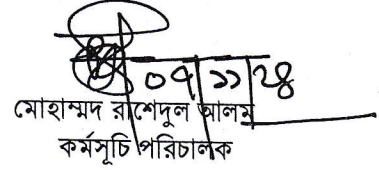 ০৭/১১/২৪
মোহাম্মদ রাশেদুল আলম
কর্মসূচি পরিচালক